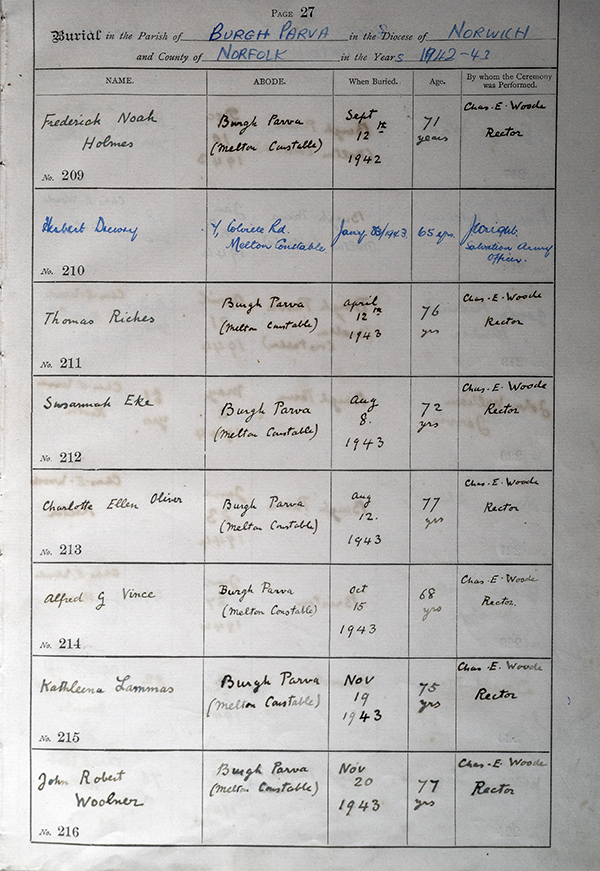 PAGE 27
Burial in the Parish of BURGH PARVA in the Diocese of NORWICH
and County of NORFOLK in the Years 1942-43
NAME. ABODE. When Buried. Age. By whom the Ceremony was Performed.
Frederick Noah
Holmes
No. 209
Burgh Parva
(Melton Constable)
Sept
12th
1942
71
years
Chas. E. Woode
Rector
Herbert Drewry
No. 210
Colville Rd.
Melton Constable
Jany. /1943.
65 yrs.
J Wright.
Salvation Army
Officer.
Thomas Riches
No. 211
Burgh Parva
(Melton Constable)
April
12th
1943
76
yrs
Chas. E. Woode
Rector
Susannah Eke
No. 212
Burgh Parva
(Melton Constable)
Aug
8.
1943
72
yrs
Chas. E. Woode
Rector
Charlotte Ellen Oliver
No. 213
Burgh Parva
(Melton Constable)
Aug
12.
1943
77
yrs
Chas. E. Woode
Rector
Alfred G Vince
No. 214
Burgh Parva
(Melton Constable)
Oct
15
1943
68
yrs
Chas. E. Woode
Rector.
Kathleena Lammas
No. 215
Burgh Parva
(Melton Constable)
Nov
19
1943
75
yrs
Chas. E. Woode
Rector
John Robert
Woolner
No. 216
Burgh Parva
(Melton Constable)
Nov
20
1943
77
yrs
Chas. E. Woode
Rector